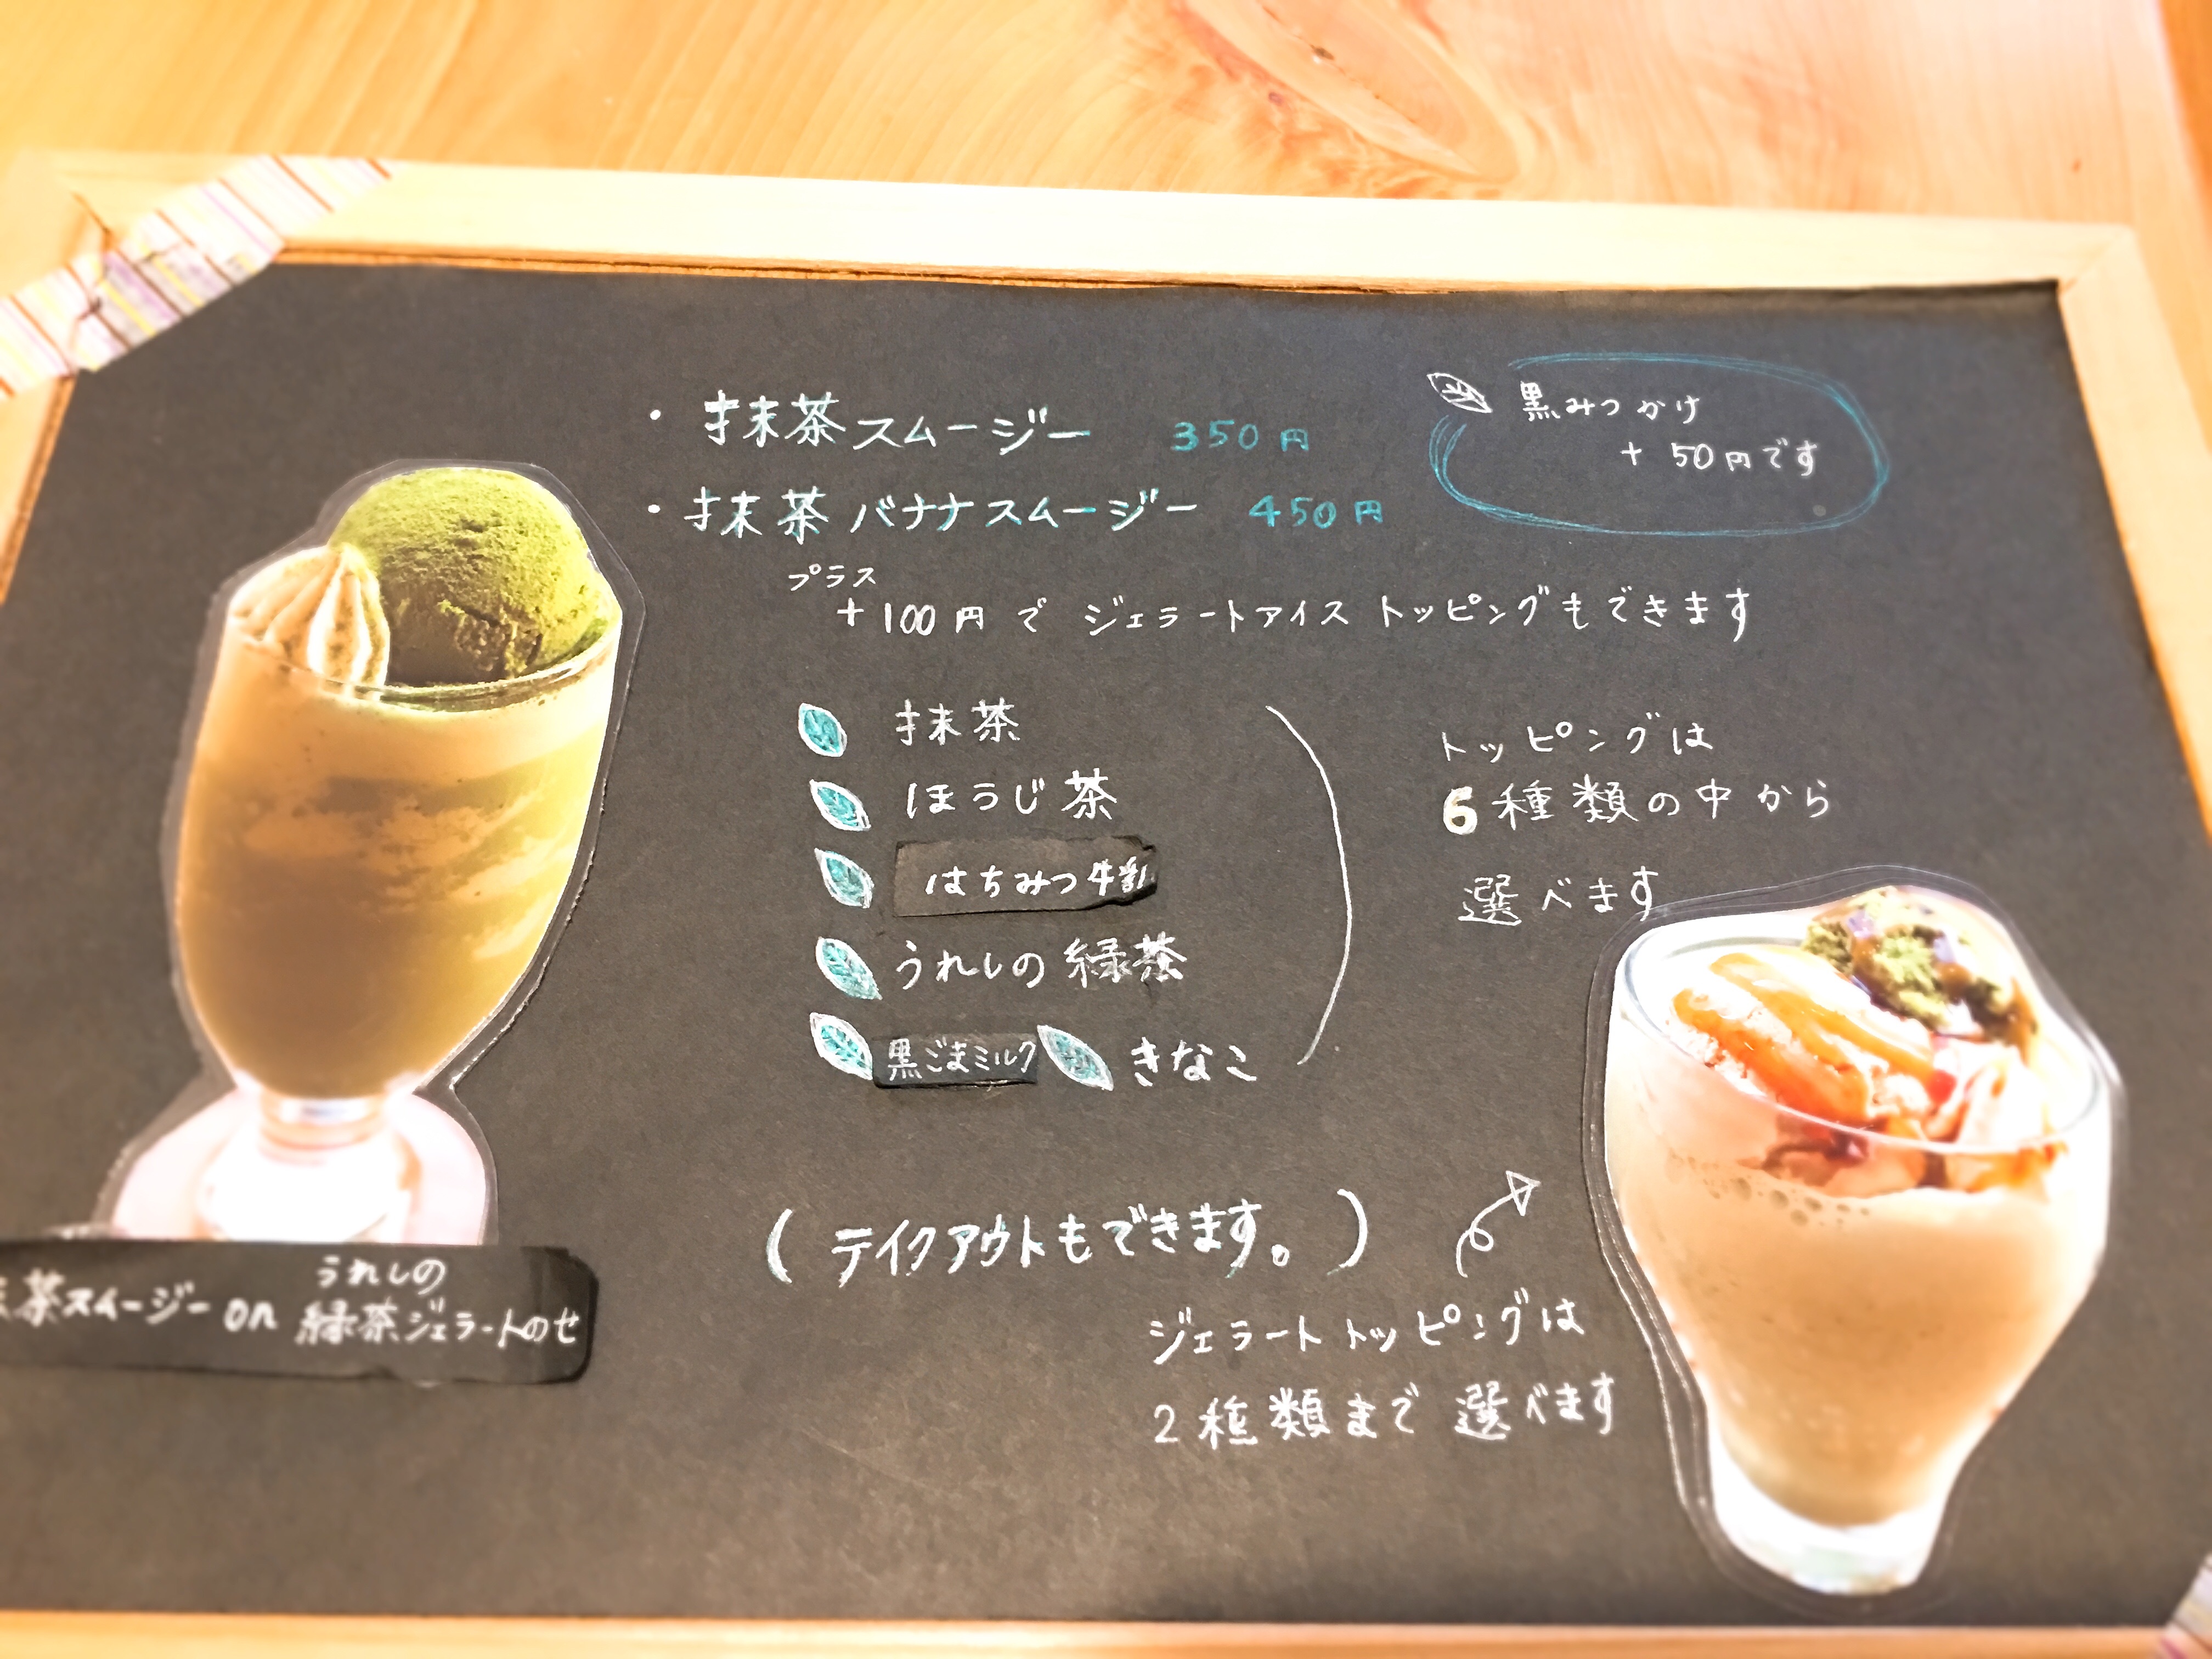 ・抹茶スムージー 350円
黒みつかけ
+50円です
・抹茶バナナスムージー 450円
プラス
+100円でジェラートアイストッピングもできます
抹茶
ほうじ茶
はちみつ牛乳
うれしの緑茶
黒ごまミルク きなこ
トッピングは
6種類の中から
選べます
(テイクアウトもできます。)
ジェラートトッピングは
2種類まで選べます
うれしの
茶スムージー on 緑茶ジェラートのせ